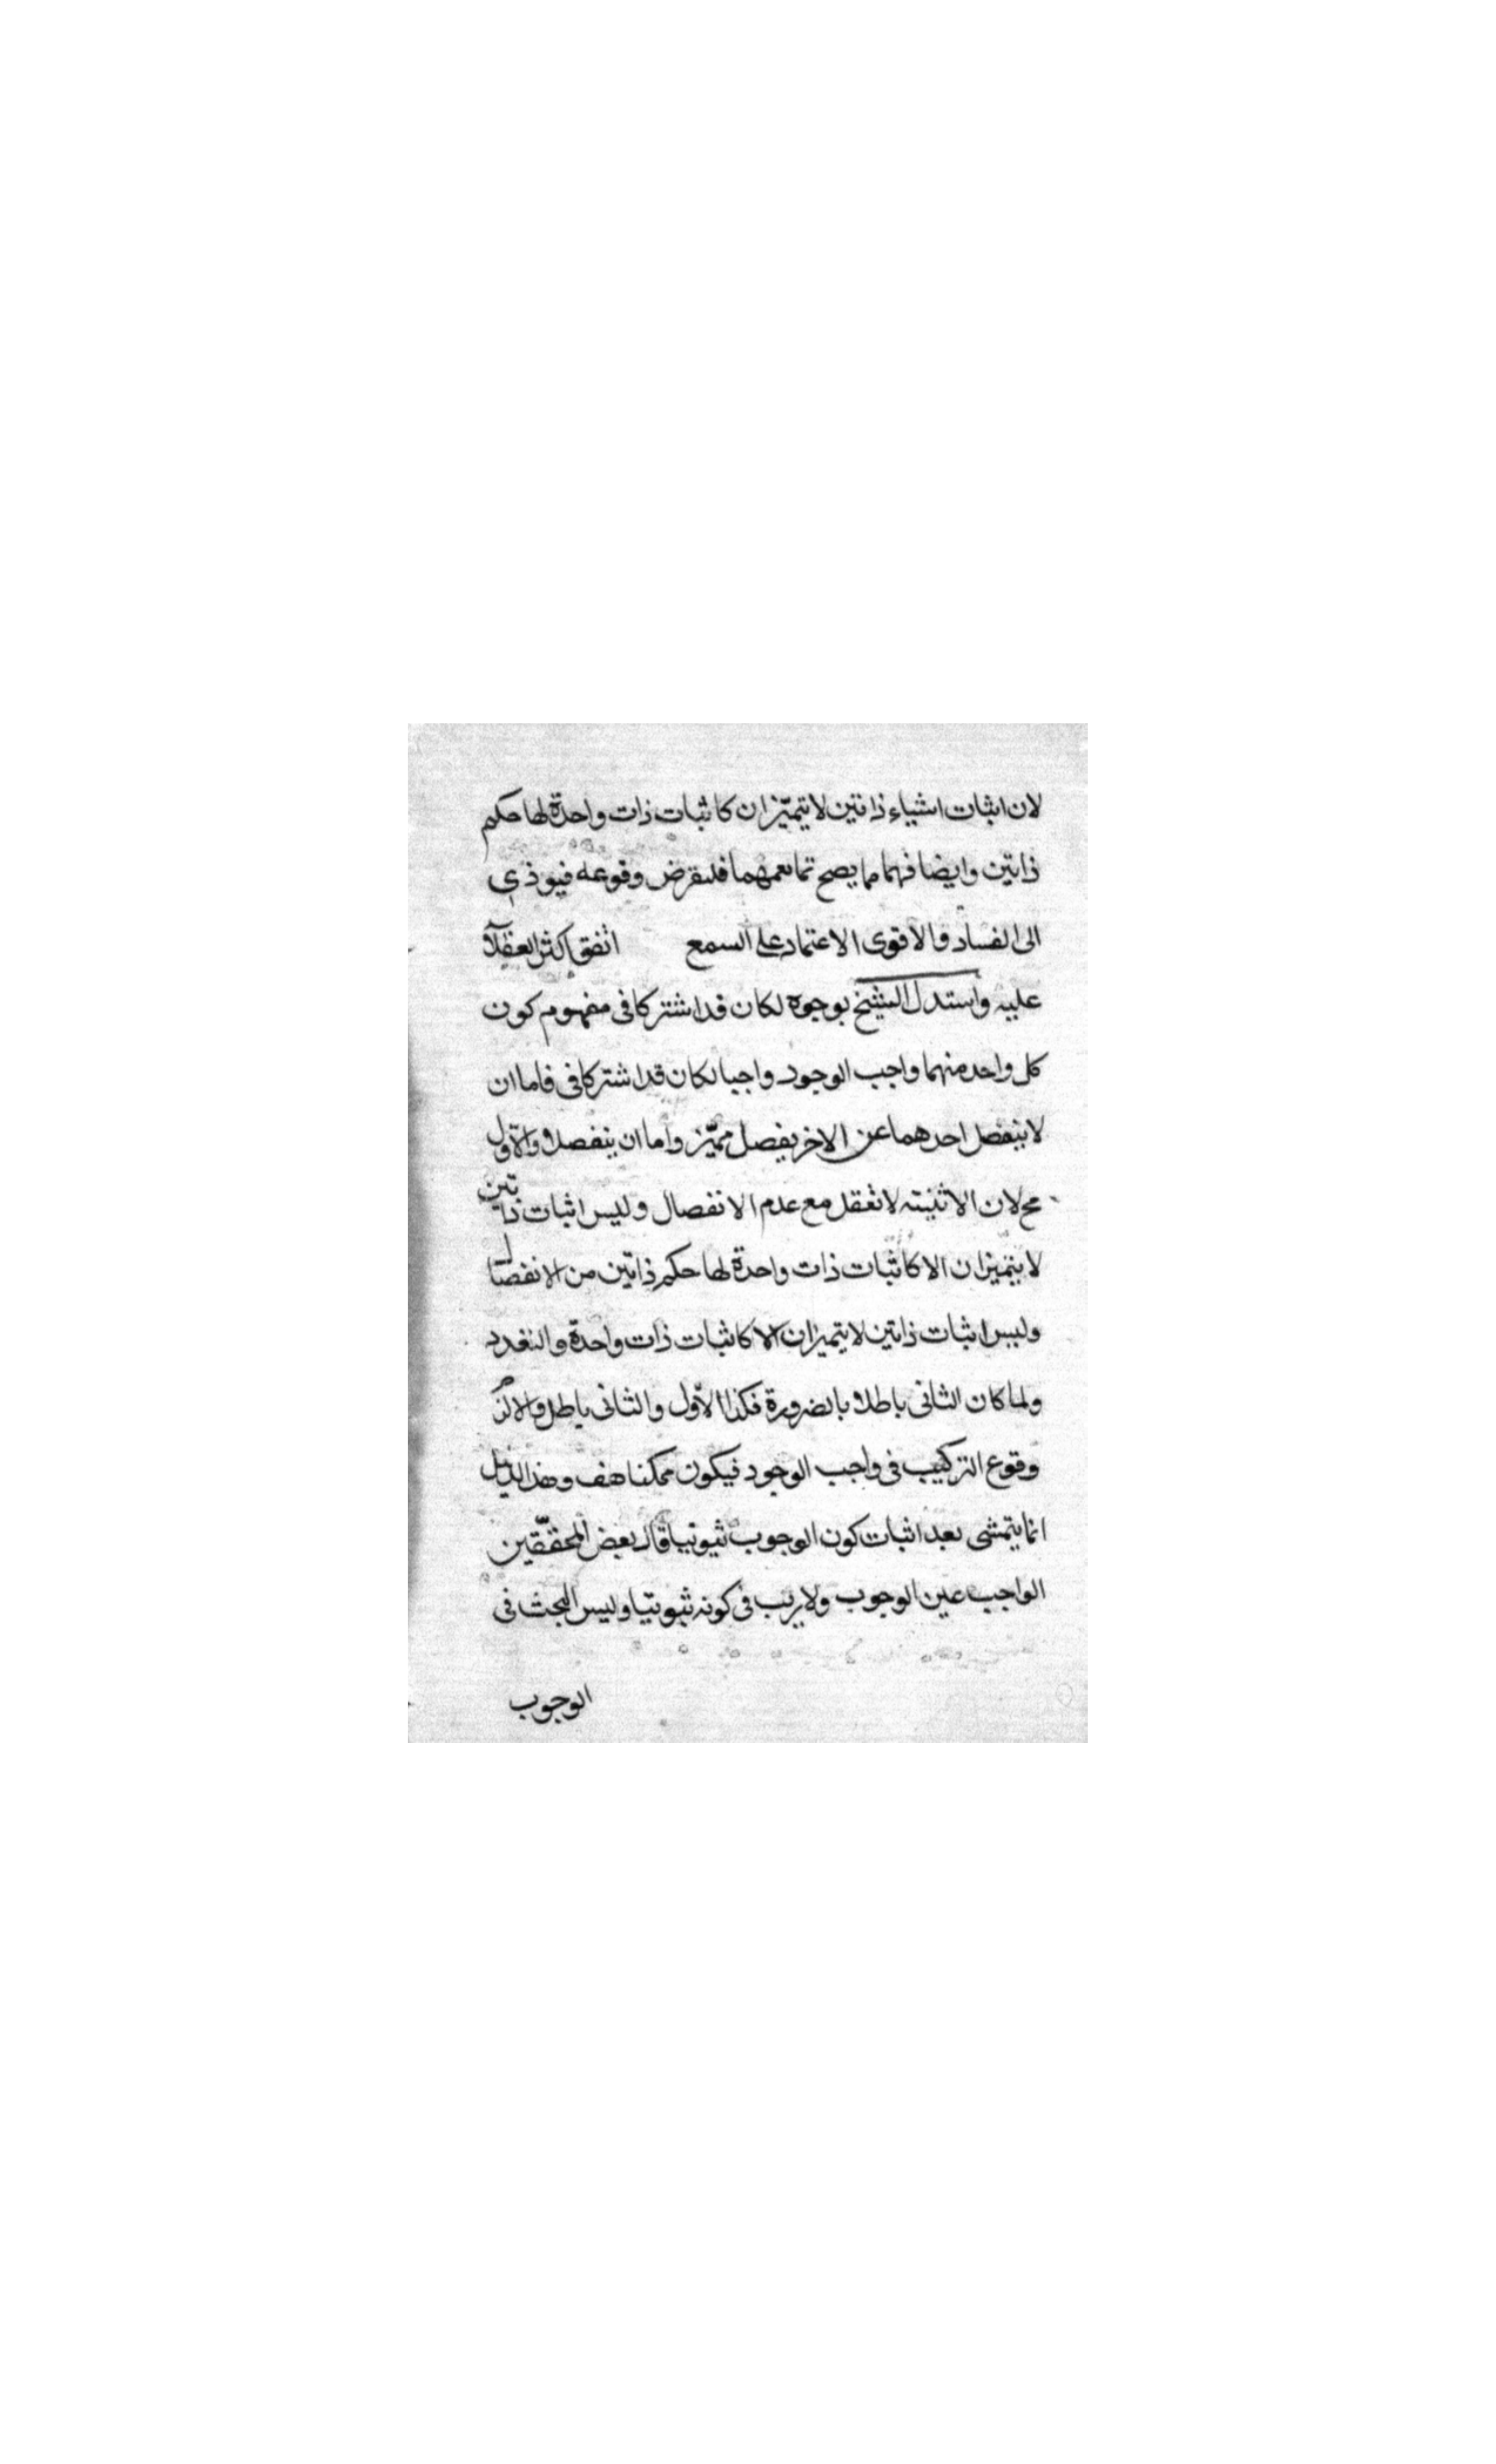 لان اثبات اشياء ذاتين لا يتميّزان كاثبات ذات واحدة لها حكم
ذاتين وايضا فهما مما يصح تمانعهما فلنفرض وقوعه فيوذى
الى الفساد والاقوى الاعتماد على السمع اتفق اكثر العقلآ
عليه واستدل الشيخ بوجوه لكان قد اشتركا فى مفهوم كون
كل واحد منهما واجب الوجود واجبا لكان قد اشتركا فى فاما ان
لا ينفصل احدهما عن الاخر بفصل مميّز واما ان ينفصلا والاوّل
مح لان الاثنينية لا تعقل مع عدم الانفصال وليس اثبات ذاتين
لا يتميزان الا كاثبات ذات واحدة لها حكم ذاتين من الانفصال
وليس اثبات ذاتين لا يتميزان الا كاثبات ذات واحدة والتعدد
ولما كان الثانى باطلا بالضرورة فكذا الاوّل والثانى باطل والا لزم
وقوع التركيب فى واجب الوجود فيكون ممكنا هف وهذا الدليل
انما يتمشى بعد اثبات كون الوجوب ثبوتيا قال بعض المحققين
الواجب عين الوجوب ولا ريب فى كونه ثبوتيا وليس البحث فى
الوجوب